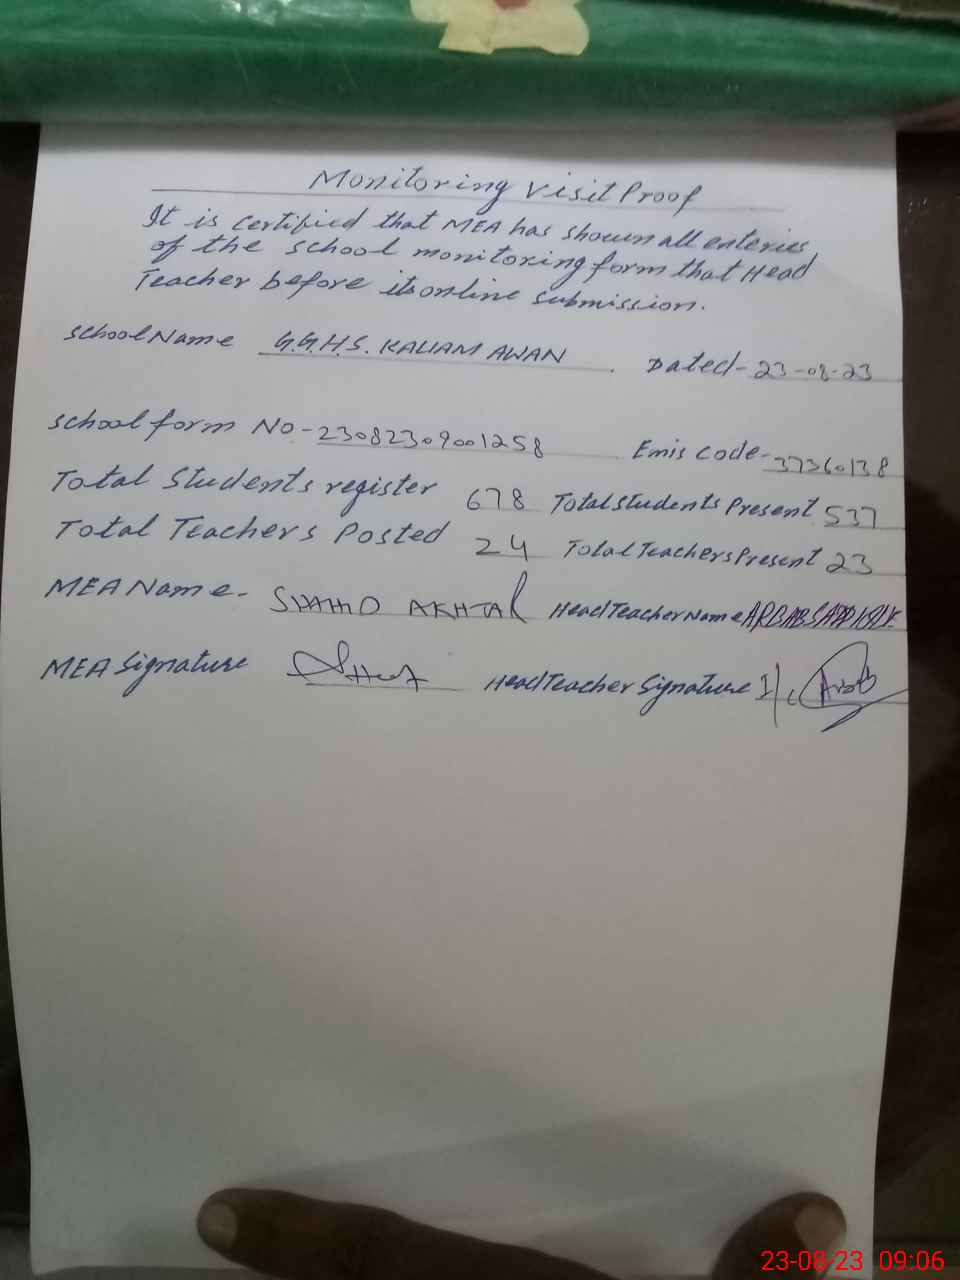 Monitoring Visit Proof
It is certified that MEA has shown all enteries
of the school monitoring form that Head
Teacher before its online submission.
School Name G.G.H.S. KALIAM AWAN Dated- 23-08-23
School form No - 23082309001258 Emis code- 37360138
Total Students register 678 Total students Present 537
Total Teachers Posted 24 Total Teachers Present 23
MEA Name - SHAHID AKHTAR Head Teacher Name
MEA Signature Head Teacher Signature
23-08-23 09:06